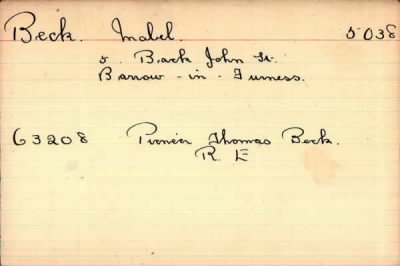 Beck. Mabel. 5038
5. Back John St.
Barrow - in - Furness.
63208 Pioneer Thomas Beck.
R. E